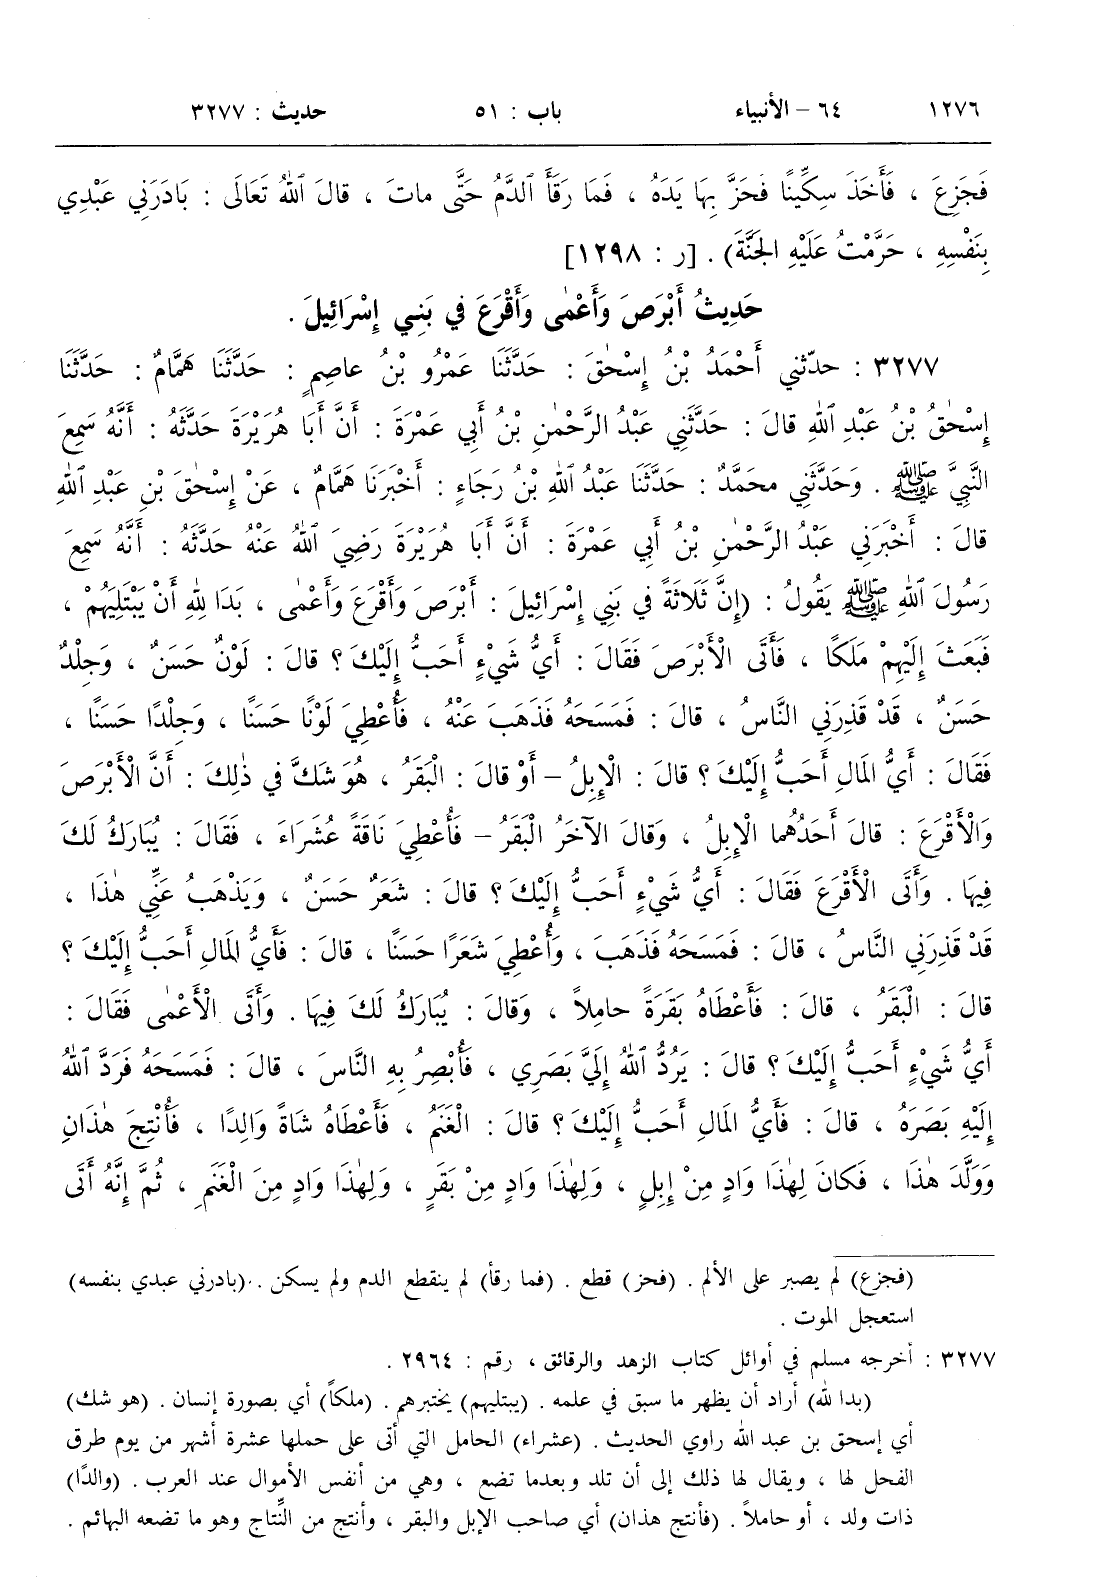 ١٢٧٦ ٦٤ – الأنبياء باب : ٥١ حديث : ٣٢٧٧
فَجَزِعَ ، فَأَخَذَ سِكِّينًا فَحَزَّ بِهَا يَدَهُ ، فَمَا رَقَأَ ٱلدَّمُ حَتَّى ماتَ ، قالَ ٱللهُ تَعَالَى : بَادَرَنِي عَبْدِي
بِنَفْسِهِ ، حَرَّمْتُ عَلَيْهِ الجَنَّةَ) . [ر : ١٢٩٨]
حَدِيثُ أَبْرَصَ وَأَعْمٰى وَأَقْرَعَ في بَنِي إِسْرَائِيلَ .
٣٢٧٧ : حدّثني أَحْمَدُ بْنُ إِسْحٰقَ : حَدَّثَنَا عَمْرُو بْنُ عاصِمٍ : حَدَّثَنَا هَمَّامٌ : حَدَّثَنَا
إِسْحٰقُ بْنُ عَبْدِ ٱللهِ قالَ : حَدَّثَنِي عَبْدُ الرَّحْمٰنِ بْنُ أَبِي عَمْرَةَ : أَنَّ أَبَا هُرَيْرَةَ حَدَّثَهُ : أَنَّهُ سَمِعَ
النَّبِيَّ ﷺ . وَحَدَّثَنِي محَمَّدٌ : حَدَّثَنَا عَبْدُ ٱللهِ بْنُ رَجَاءٍ : أَخْبَرَنَا هَمَّامٌ ، عَنْ إِسْحٰقَ بْنِ عَبْدِ ٱللهِ
قالَ : أَخْبَرَنِي عَبْدُ الرَّحْمٰنِ بْنُ أَبِي عَمْرَةَ : أَنَّ أَبَا هُرَيْرَةَ رَضِيَ ٱللهُ عَنْهُ حَدَّثَهُ : أَنَّهُ سَمِعَ
رَسُولَ ٱللهِ ﷺ يَقُولُ : (إِنَّ ثَلَاثَةً في بَنِي إِسْرَائِيلَ : أَبْرَصَ وَأَقْرَعَ وَأَعْمٰى ، بَدَا لِلهِ أَنْ يَبْتَلِيَهُمْ ،
فَبَعَثَ إِلَيْهِمْ مَلَكًا ، فَأَتَى الْأَبْرَصَ فَقَالَ : أَيُّ شَيْءٍ أَحَبُّ إِلَيْكَ ؟ قالَ : لَوْنٌ حَسَنٌ ، وَجِلْدٌ
حَسَنٌ ، قَدْ قَذِرَنِي النَّاسُ ، قالَ : فَمَسَحَهُ فَذَهَبَ عَنْهُ ، فَأُعْطِيَ لَوْنًا حَسَنًا ، وَجِلْدًا حَسَنًا ،
فَقَالَ : أَيُّ المَالِ أَحَبُّ إِلَيْكَ ؟ قالَ : الْإِبِلُ – أَوْ قالَ : الْبَقَرُ ، هُوَ شَكَّ في ذٰلِكَ : أَنَّ الْأَبْرَصَ
وَالْأَقْرَعَ : قالَ أَحَدُهُما الْإِبِلُ ، وَقالَ الآخَرُ الْبَقَرُ – فَأُعْطِيَ نَاقَةً عُشَرَاءَ ، فَقَالَ : يُبَارَكُ لَكَ
فِيهَا . وَأَتَى الْأَقْرَعَ فَقَالَ : أَيُّ شَيْءٍ أَحَبُّ إِلَيْكَ ؟ قالَ : شَعَرٌ حَسَنٌ ، وَيَذْهَبُ عَنِّي هٰذَا ،
قَدْ قَذِرَنِي النَّاسُ ، قالَ : فَمَسَحَهُ فَذَهَبَ ، وَأُعْطِيَ شَعَرًا حَسَنًا ، قالَ : فَأَيُّ المَالِ أَحَبُّ إِلَيْكَ ؟
قالَ : الْبَقَرُ ، قالَ : فَأَعْطَاهُ بَقَرَةً حامِلاً ، وَقالَ : يُبَارَكُ لَكَ فِيهَا . وَأَتَى الْأَعْمٰى فَقَالَ :
أَيُّ شَيْءٍ أَحَبُّ إِلَيْكَ ؟ قالَ : يَرُدُّ ٱللهُ إِلَيَّ بَصَرِي ، فَأُبْصِرُ بِهِ النَّاسَ ، قالَ : فَمَسَحَهُ فَرَدَّ ٱللهُ
إِلَيْهِ بَصَرَهُ ، قالَ : فَأَيُّ المَالِ أَحَبُّ إِلَيْكَ ؟ قالَ : الْغَنَمُ ، فَأَعْطَاهُ شَاةً وَالِدًا ، فَأُنْتِجَ هٰذَانِ
وَوَلَّدَ هٰذَا ، فَكانَ لِهٰذَا وَادٍ مِنْ إِبِلٍ ، وَلِهٰذَا وَادٍ مِنْ بَقَرٍ ، وَلِهٰذَا وَادٍ مِنَ الْغَنَمِ ، ثُمَّ إِنَّهُ أَتَى
(فجزع) لم يصبر على الألم . (فحز) قطع . (فما رقأ) لم ينقطع الدم ولم يسكن . (بادرني عبدي بنفسه)
استعجل الموت .
٣٢٧٧ : أخرجه مسلم في أوائل كتاب الزهد والرقائق ، رقم : ٢٩٦٤ .
(بدا لله) أراد أن يظهر ما سبق في علمه . (يبتليهم) يختبرهم . (ملكاً) أي بصورة إنسان . (هو شك)
أي إسحق بن عبد الله راوي الحديث . (عشراء) الحامل التي أتى على حملها عشرة أشهر من يوم طرق
الفحل لها ، ويقال لها ذلك إلى أن تلد وبعدما تضع ، وهي من أنفس الأموال عند العرب . (والدًا)
ذات ولد ، أو حاملاً . (فأنتج هذان) أي صاحب الإبل والبقر ، وأنتج من النِّتاج وهو ما تضعه البهائم .